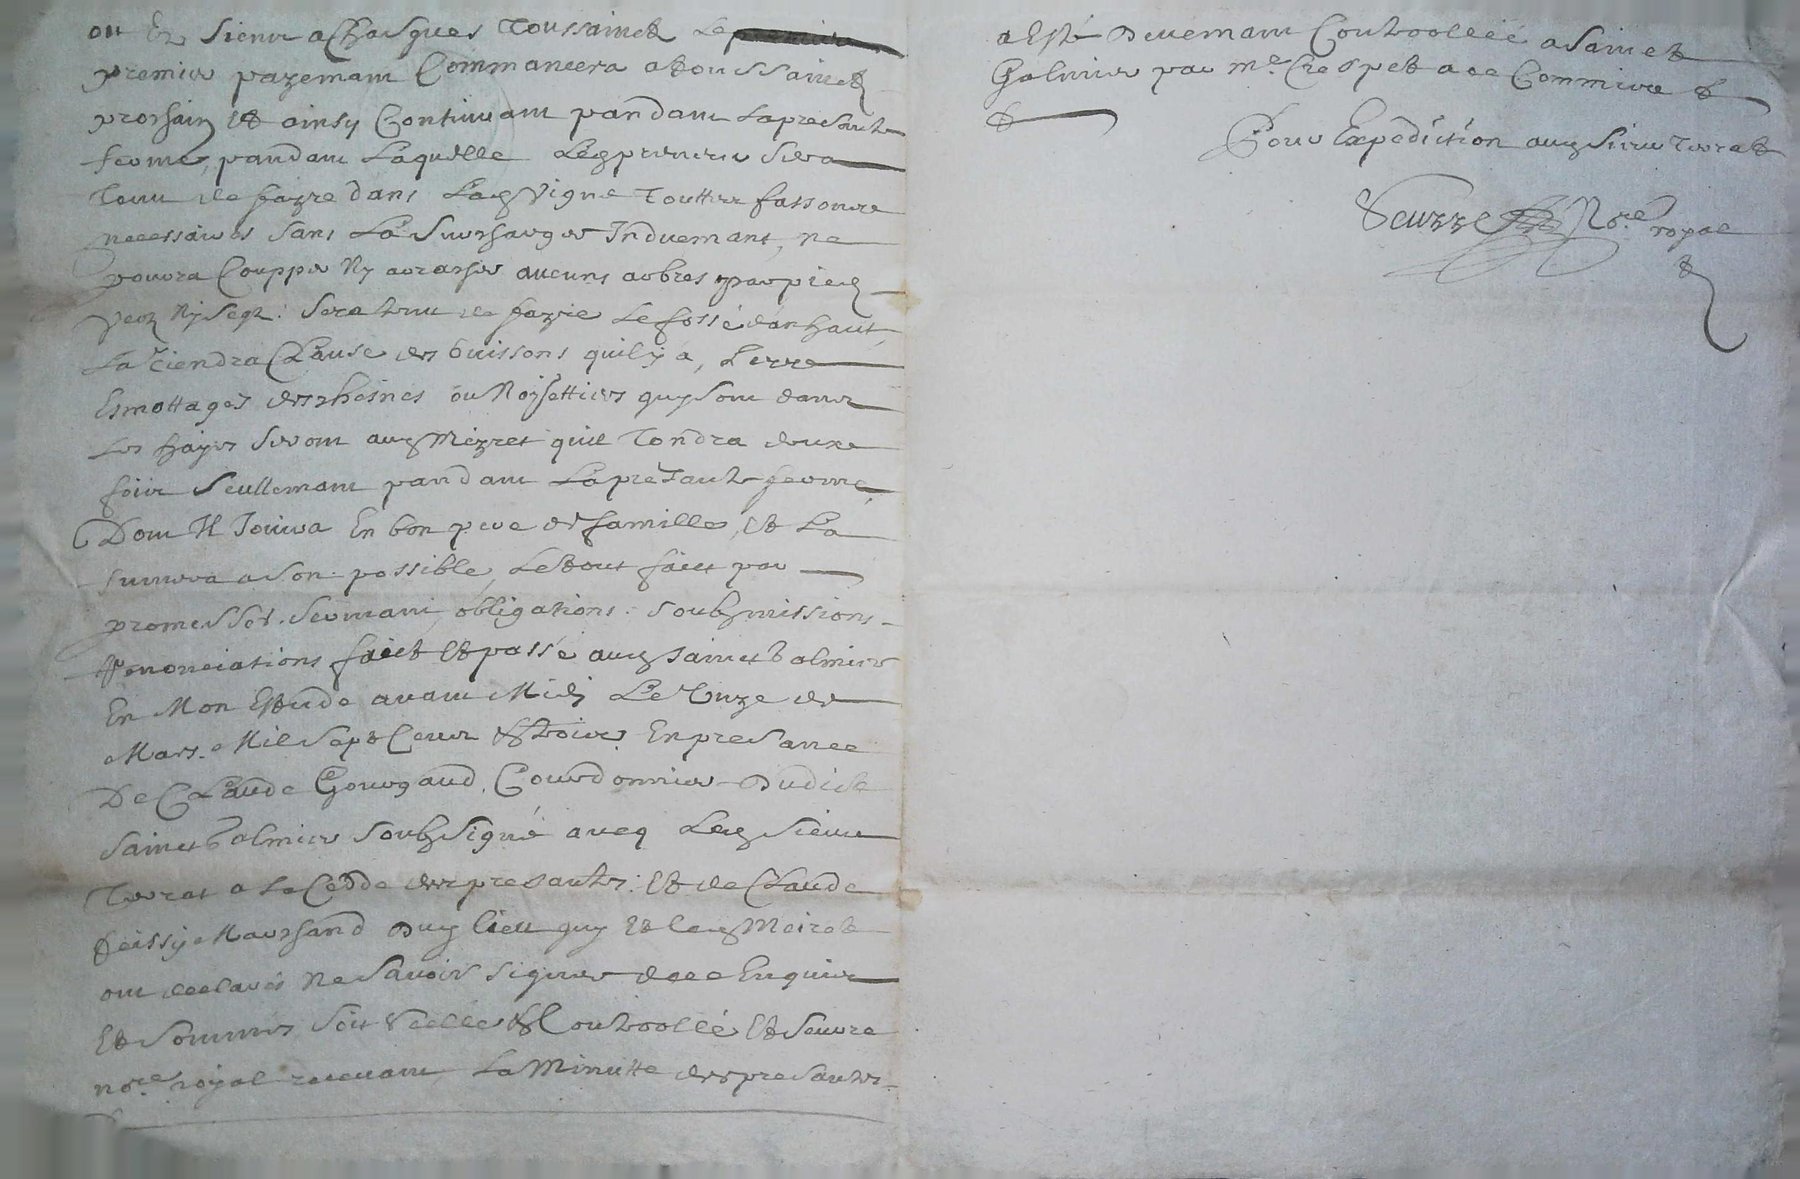 Sieur a Chasques Toussainct Le
premier payemant Commancera a Toussainct
prochain Et ainsy Continuant pandant La presante
ferme, pandant Laquelle Ledz preneur sera
Tenu de fayre dans Lad vigne Touttes fassons
necessaires sans La Surcharger Induemant, ne
pouvra Coupper Ny arracher aucuns arbres par pied
Ny secq: sera tenu de fayre Le fossé d'an haut,
La Tiendra Clause des buissons quil y a, Les
Esmottages des chesnes ou Noisettiers quy sont dans
Les hayes seront audz Meyret quil Tondra deux
fois seullemant pandant La presante ferme,
Dont Il Jouira En bon pere de famille, Et La
a son possible, Le tout faict par
promesses. sermant, obligations. soubzmissions.
Renonciations faict Et passé audz sainct Galmier
En Mon Estude avant Midy Le Unze de
Mars. Mil Sept Cent & trois. En presance
De Claude Gourgaud, Courdonnier Dudict
sainct Galmier soubzsigné aveq Ledz sieur
Terrat a La Cedde des presantes: Et de Claude
Marchand Dudz lieu quy Et ledz Meiret
ont declarés Ne Savoir signer de ce Enquis
Et Sommés soit & Controollé Et Seurre
nore. royal recevant La Minutte des presantes.
a Esté Deuemant Controollée a Sainct
Galmier par me. Crespet a ce Commis &
&
Pour Expedition audz sieur Terrat
Seurre Nore. royal